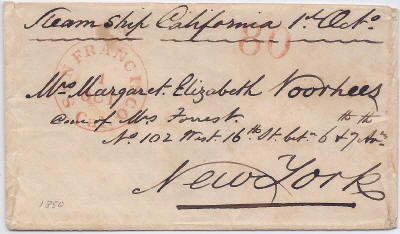 Steam Ship California 1st Octo
80
SAN FRANCISCO
1
OCT
CAL.
Mrs Margaret. Elizabeth Voorhees
Care of Mrs Forrest.
No 102 West. 16th St. betn 6th & 7th Avs
New York
1850